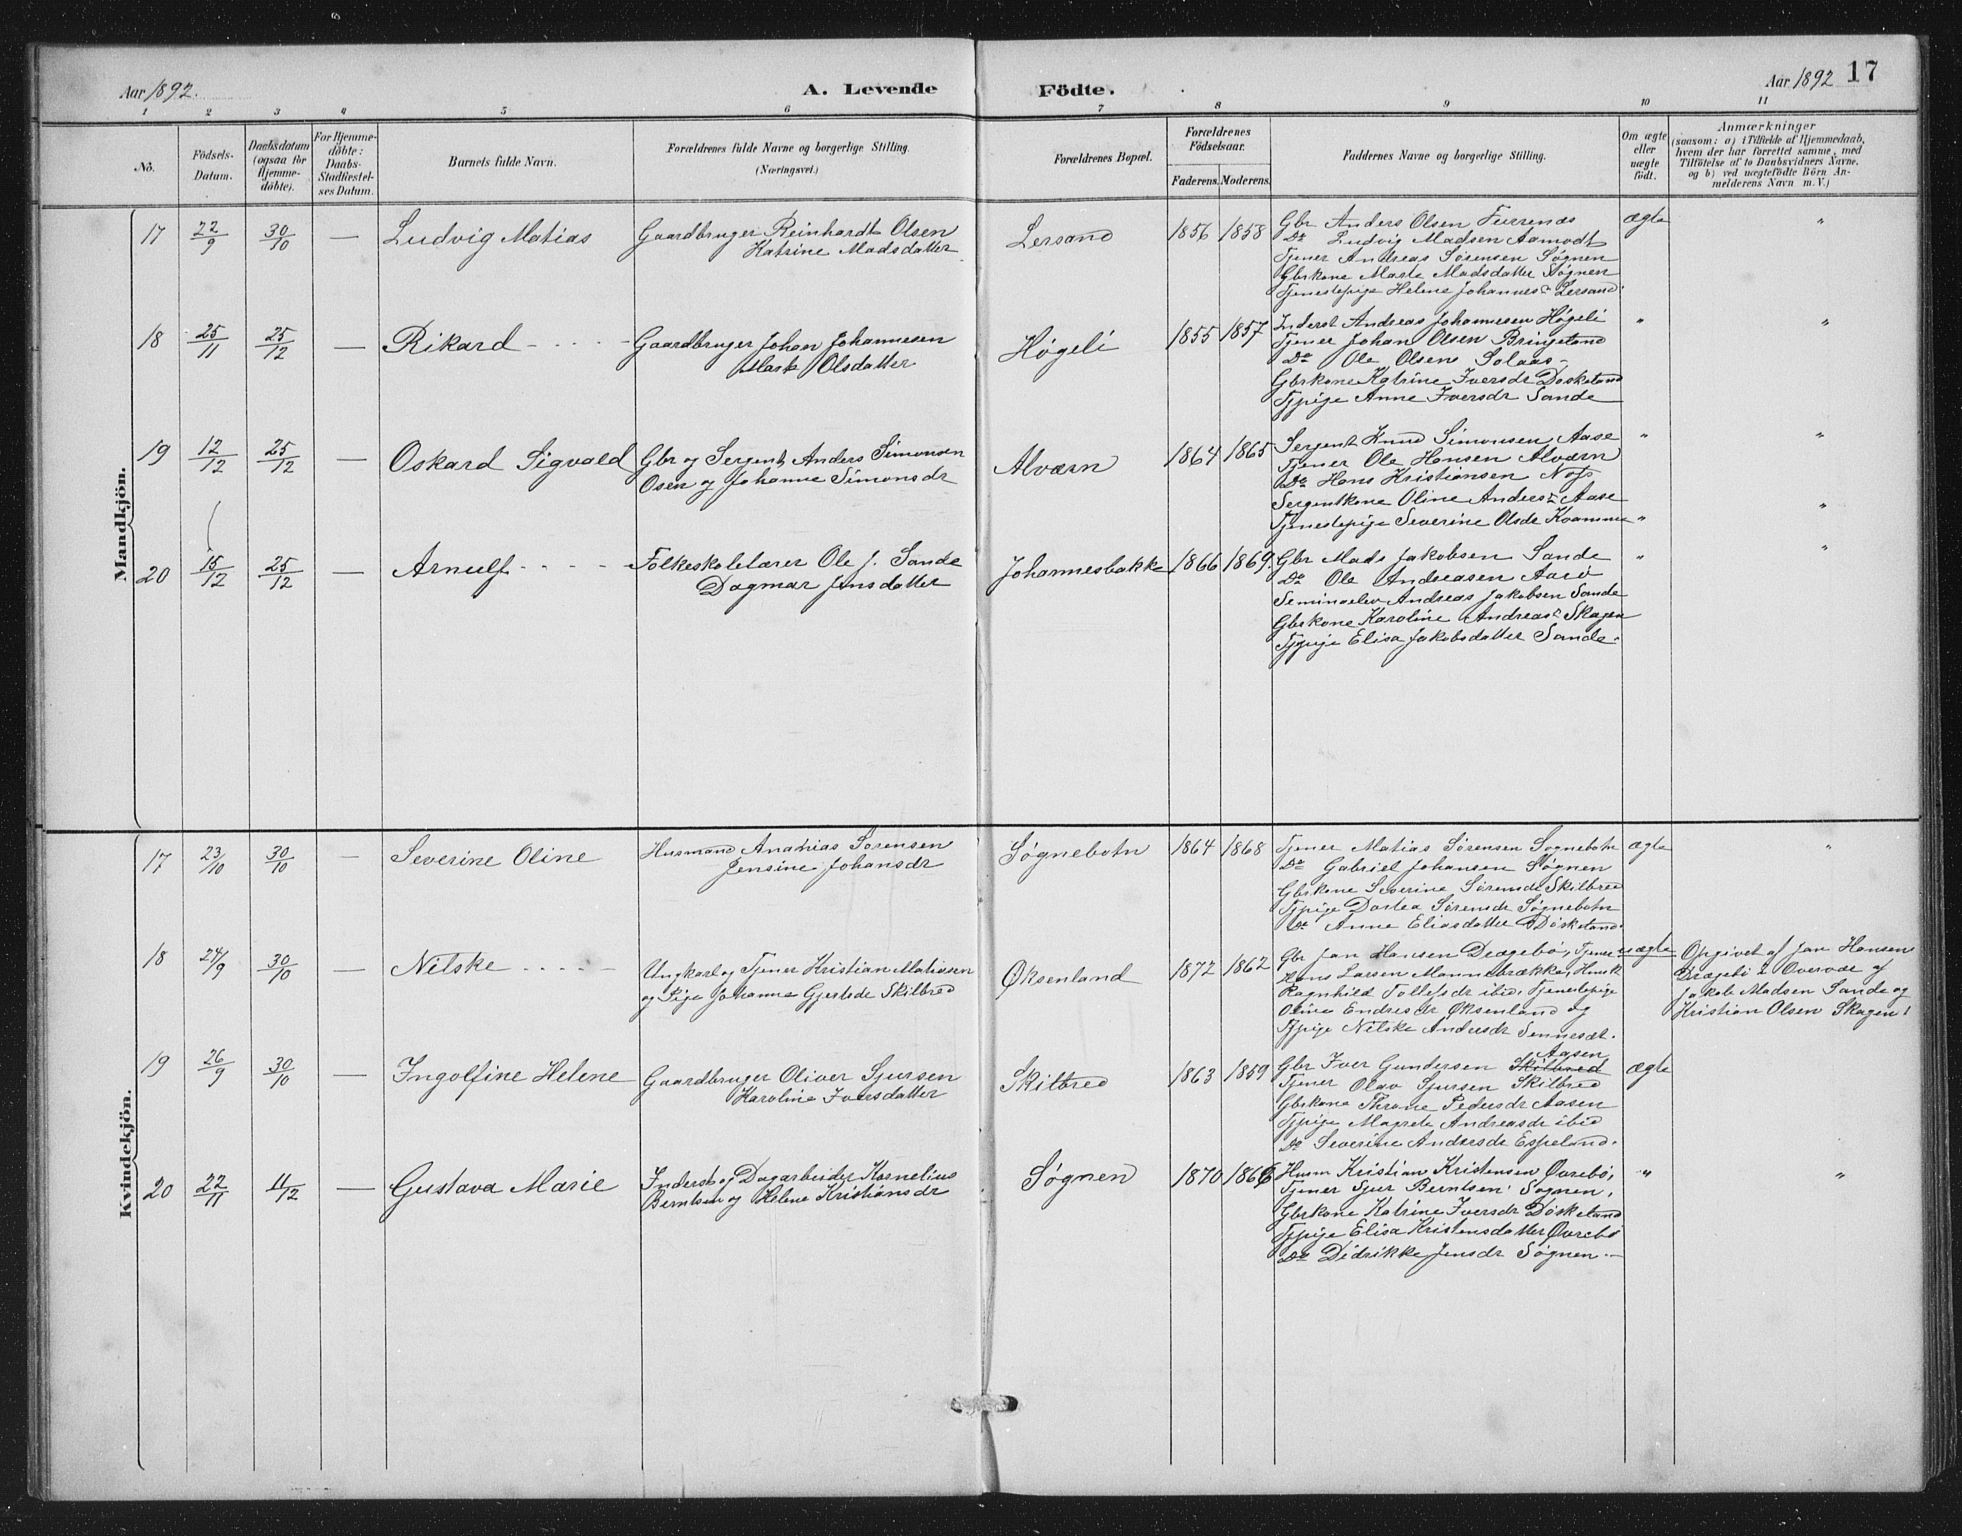 Aar 1892.
A. Levende Födte.
Aar 1892 17
1 2 3 4 5 6 7 8 9 10 11
No.
Födsels-
Datum.
Daabsdatum
(ogsaa för
Hjemme-
döbte).
For Hjemme-
döbte:
Daabs-
Stadfæstel-
ses Datum.
Barnets fulde Navn.
Forældrenes fulde Navne og borgerlige Stilling.
(Næringsvei.)
Forældrenes Bopæl.
Forældrenes
Födselsaar.
Faderens. Moderens.
Faddernes Navne og borgerlige Stilling.
Om ægte
eller
uægte
födt.
Anmærkninger
(saasom: a) i Tilfælde af Hjemmedaab,
hvem der har forrettet samme, med
Tilföielse af to Daabsvidners Navne,
og b) ved uægtefödte Börn An-
melderens Navn m. V.)
Mandkjön.
17 22/9 30/10 — Ludvig Matias
Gaardbruger Reinhardt Olsen
Katrine Madsdatter
Lersand 1856 1858
Gbr Anders Olsen Furrenæs
Do Ludvig Madsen Aamodt
Tjener Andreas Sørensen Søgnen
Gbrkone Marte Madsdatter Søgnen
Tjenestepige Helene Johannesd. Lersand.
ægte "
18 25/11 25/12 — Rikard - - - -
Gaardbruger Johan Johannesen
Marte Olsdatter
Høgeli 1855 1857
Inderst Andreas Johannesen Høgeli
Tjener Johan Olsen Bringeland
Do Ole Olsen Solaas -
Gbrkone Katrine Iversdr Døskeland
Tjpige Anne Iversdr Sande
" "
19 12/12 25/12 — Oskard Sigvald
Gbr og Sergent Anders Simonsen
Osen og Johanne Simonsdr
Alværn 1864 1865
Sergent Knud Simonsen Aase
Tjener Ole Hansen Alværn
Do Hans Kristiansen
Sergentkone Oline Andersdr Aase
Tjenestepige Severine Olsdr Kvamme
" "
" "
20 15/12 25/12 — Arnulf - - - -
Folkeskolelærer Ole J. Sande
Dagmar Jensdatter
Johannesbakke 1866 1869.
Gbr Mads Jakobsen Sande
Do Ole Andreasen Aarø
Seminaelev Andreas Jakobsen Sande
Gbrkone Karoline Andreasd. Skagen
Tjpige Elisa Jakobsdatter Sande.
" "
Kvindekjön.
17 23/10 30/10 — Severine Oline
Husmand Ananias Sørensen
Jensine Johansdr
Søgnebotn 1864 1868
Tjener Matias Sørensen Søgnebotn
Do Gabriel Johansen Søgnen
Gbrkone Severine Sørensdr Skilbred
Tjpige Dortea Sørensdr Søgnebotn
Do Anne Eliasdatter Døskeland
ægte "
18 24/9 30/10 — Nilske - - - -
Ungkarl og Tjener Kristian Matiasen
og Pige Johanne Gjertsdr Skilbred
Øksenland 1872 1862
Gbr Jan Hansen Drægebø, Tjener
Hans Larsen Mannebrække, Husk
Ragnhild Tollefsdr ibid. Tjenestepige
Oline Endresdr Øksenland og
Tjpige Nilske Andersdr Sennesæt.
uægte
Opgivet af Jan Hansen
Drægebø i Overvær af
Jakob Madsen Sande og
Kristian Olsen Skagen
19 26/9 30/10 — Ingolfine Helene
Gaardbruger Oliver Sjursen
Karoline Iversdatter
Skilbred 1863 1859
Aasen
Gbr Iver Gundersen Skilbred
Tjener Olav Sjursen Skilbred
Gbrkone Throne Pedersdr Aasen
Tjpige Magrete Andreasdr ibid
Do Severine Andersdr Espeland.
ægte
20 22/11 11/12 — Gustava Marie
Inderst og Dagarbeider Kornelius
Berntsen og Helene Kristiansdr
Søgnen 1870 1866
Husm Kristian Kristensen Øvrebø,
Tjener Sjur Berntsen Søgnen,
Gbrkone Katrine Iversdr Døskeland
Tjpige Elisa Kristensdatter Øvrebø
Do Didrikke Jensdr Søgnen. -
" "